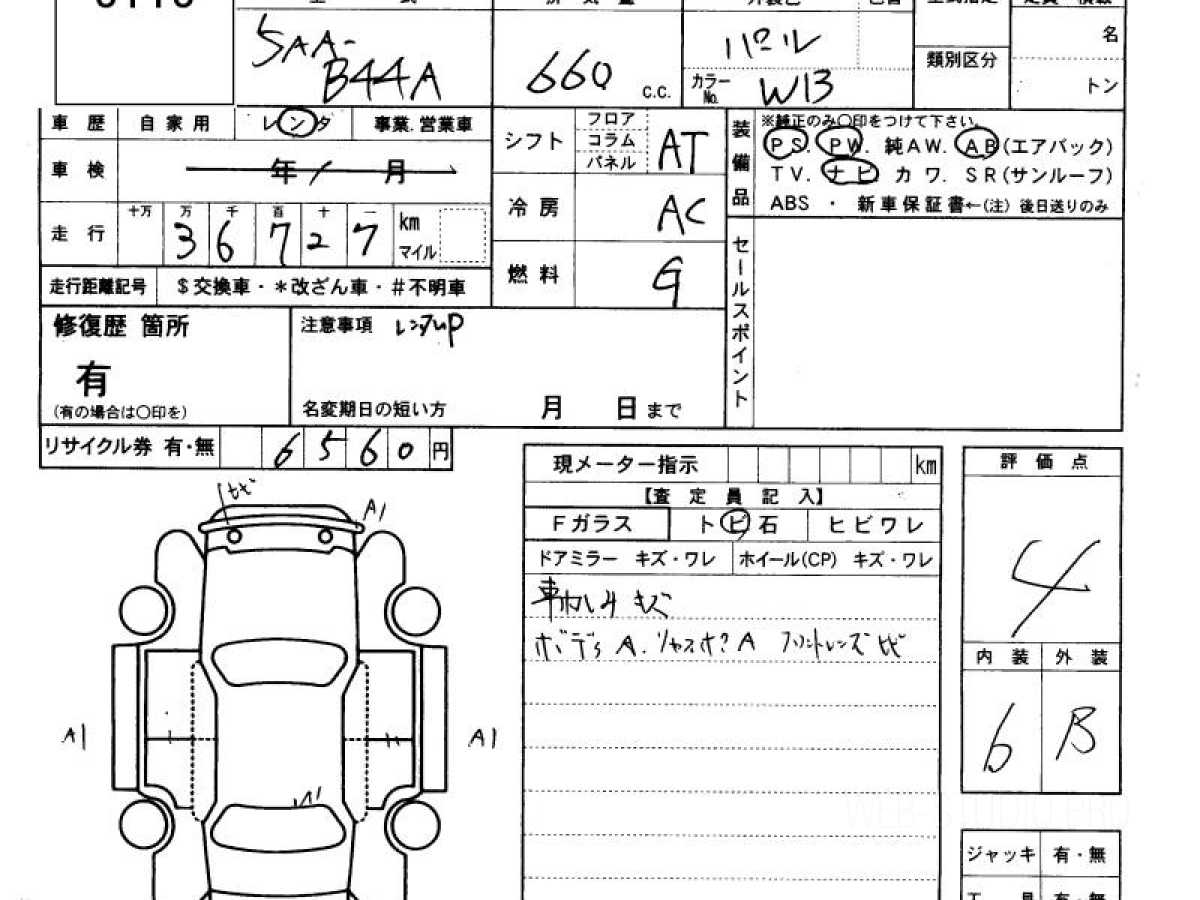 5AA-
B44A
660 c.c.
パール
カラーNo. W13
類別区分
名
トン
車歴 自家用 レンタ 事業.営業車
シフト
フロア
コラム
パネル
AT
車検 年 / 月
走行 十万 万 千 百 十 一
3 6 7 2 7 km
マイル
冷房 AC
燃料 G
走行距離記号 $交換車・*改ざん車・#不明車
装備品
※純正のみ〇印をつけて下さい。
PS. PW. 純AW. AB(エアバック)
TV. ナビ. カワ. SR(サンルーフ)
ABS ・ 新車保証書←(注) 後日送りのみ
セールスポイント
修復歴 箇所
有
(有の場合は〇印を)
注意事項 レンタUP
名変期日の短い方 月 日まで
リサイクル券 有・無 6 5 6 0 円
現メーター指示 km
【査定員記入】
Fガラス トビ石 ヒビワレ
ドアミラー キズ・ワレ ホイール(CP) キズ・ワレ
キズ
A1
A1
A1
評価点
4
内装 外装
6 B
ジャッキ 有・無
工具 有・無
WEB-STUDIO.PRO